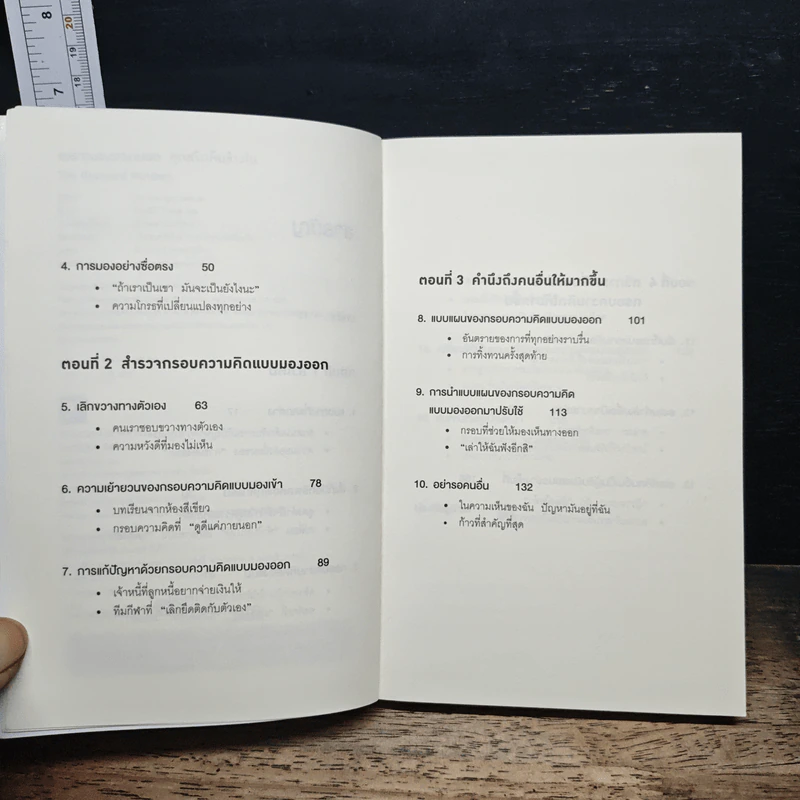 8
20
19
18
7
4. การมองอย่างซื่อตรง 50
• "ถ้าเราเป็นเขา มันจะเป็นยังไงนะ"
• ความโกรธที่เปลี่ยนแปลงทุกอย่าง
ตอนที่ 2 สำรวจกรอบความคิดแบบมองออก
5. เลิกขวางทางตัวเอง 63
• คนเราชอบขวางทางตัวเอง
• ความหวังดีที่มองไม่เห็น
6. ความเย้ายวนของกรอบความคิดแบบมองเข้า 78
• บทเรียนจากห้องสีเขียว
• กรอบความคิดที่ "ดูดีแค่ภายนอก"
7. การแก้ปัญหาด้วยกรอบความคิดแบบมองออก 89
• เจ้าหนี้ที่ลูกหนี้อยากจ่ายเงินให้
• ทีมกีฬาที่ "เลิกยึดติดกับตัวเอง"
ตอนที่ 3 คำนึงถึงคนอื่นให้มากขึ้น
8. แบบแผนของกรอบความคิดแบบมองออก 101
• อันตรายของการที่ทุกอย่างราบรื่น
• การทิ้งทวนครั้งสุดท้าย
9. การนำแบบแผนของกรอบความคิด
แบบมองออกมาปรับใช้ 113
• กรอบที่ช่วยให้มองเห็นทางออก
• "เล่าให้ฉันฟังอีกสิ"
10. อย่ารอคนอื่น 132
• ในความเห็นของฉัน ปัญหามันอยู่ที่ฉัน
• ก้าวที่สำคัญที่สุด